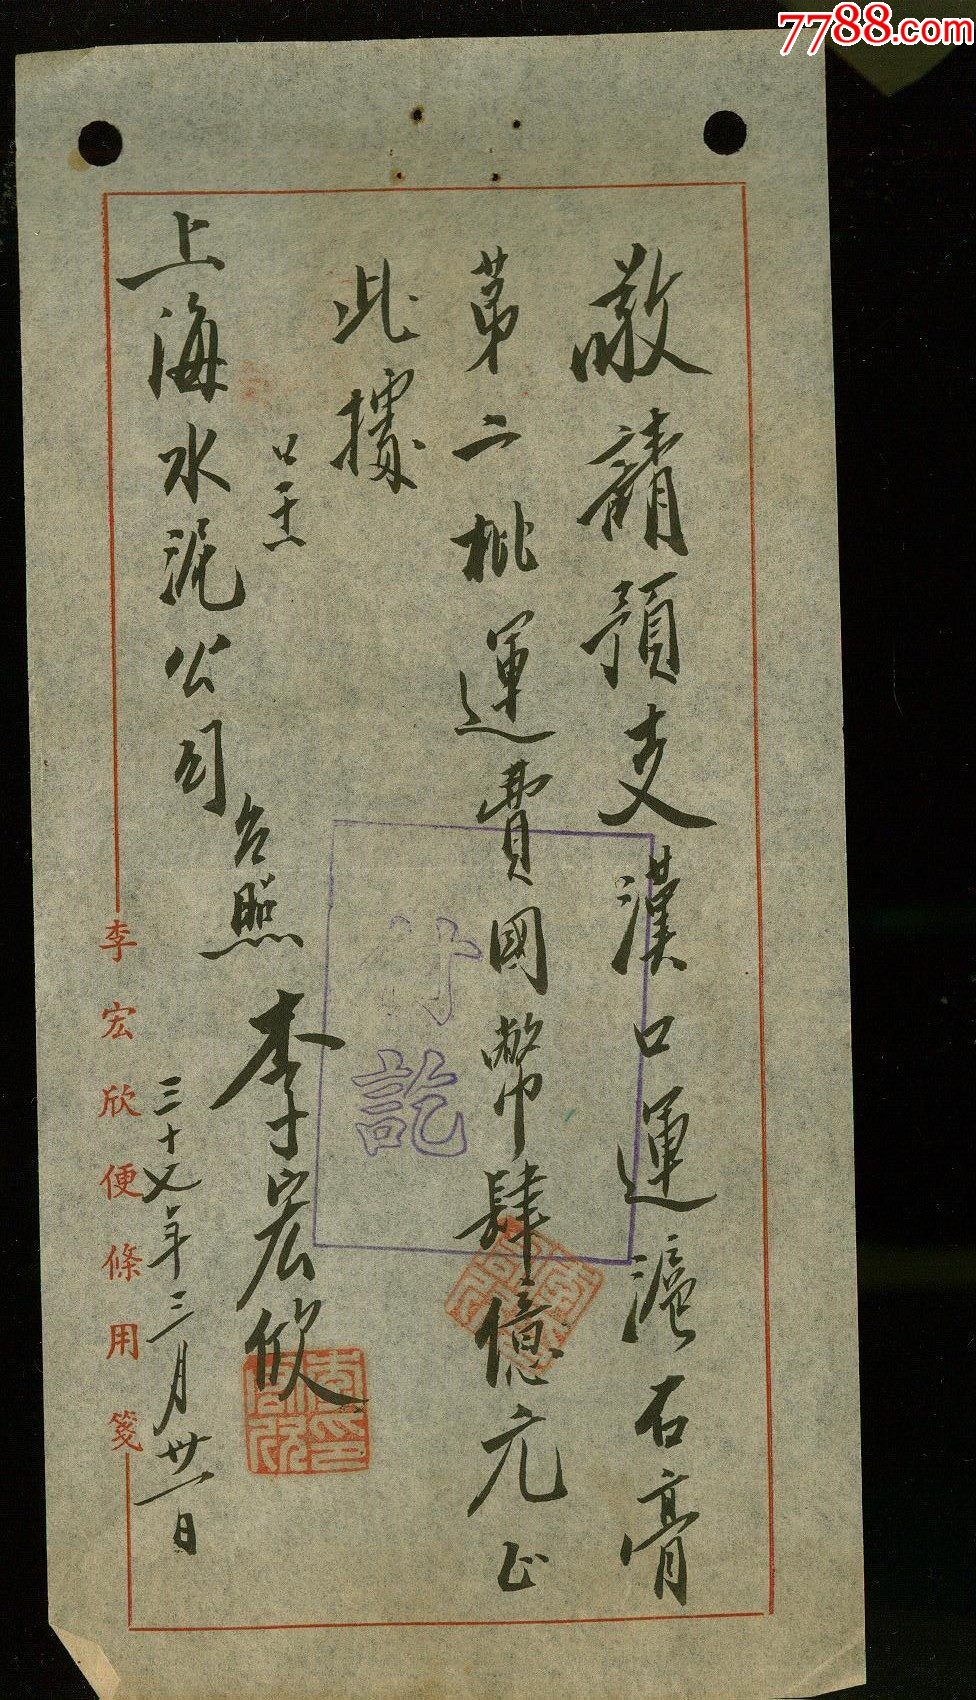 7788.com
敬請預支漢口運滬石膏
第二批運費國幣肆億元正
此據
呈
上海水泥公司台照
李宏欣
三十七年三月卅一日
李宏欣便條用箋
付訖